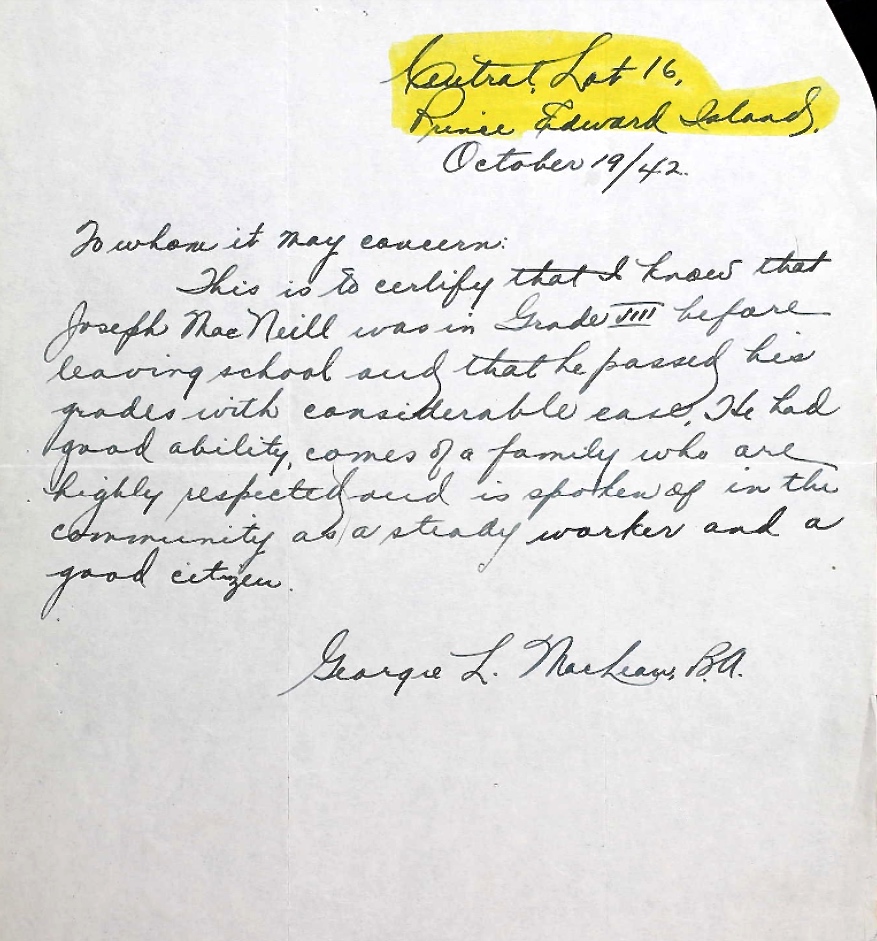 Central, Lot 16,
Prince Edward Island.
October 19/42.
To whom it may concern:
This is to certify that I know that
Joseph MacNeill was in Grade VIII before
leaving school and that he passed his
grades with considerable ease. He had
good ability, comes of a family who are
highly respected and is spoken of in the
community as a steady worker and a
good citizen.
Georgie L. MacLean, B.A.